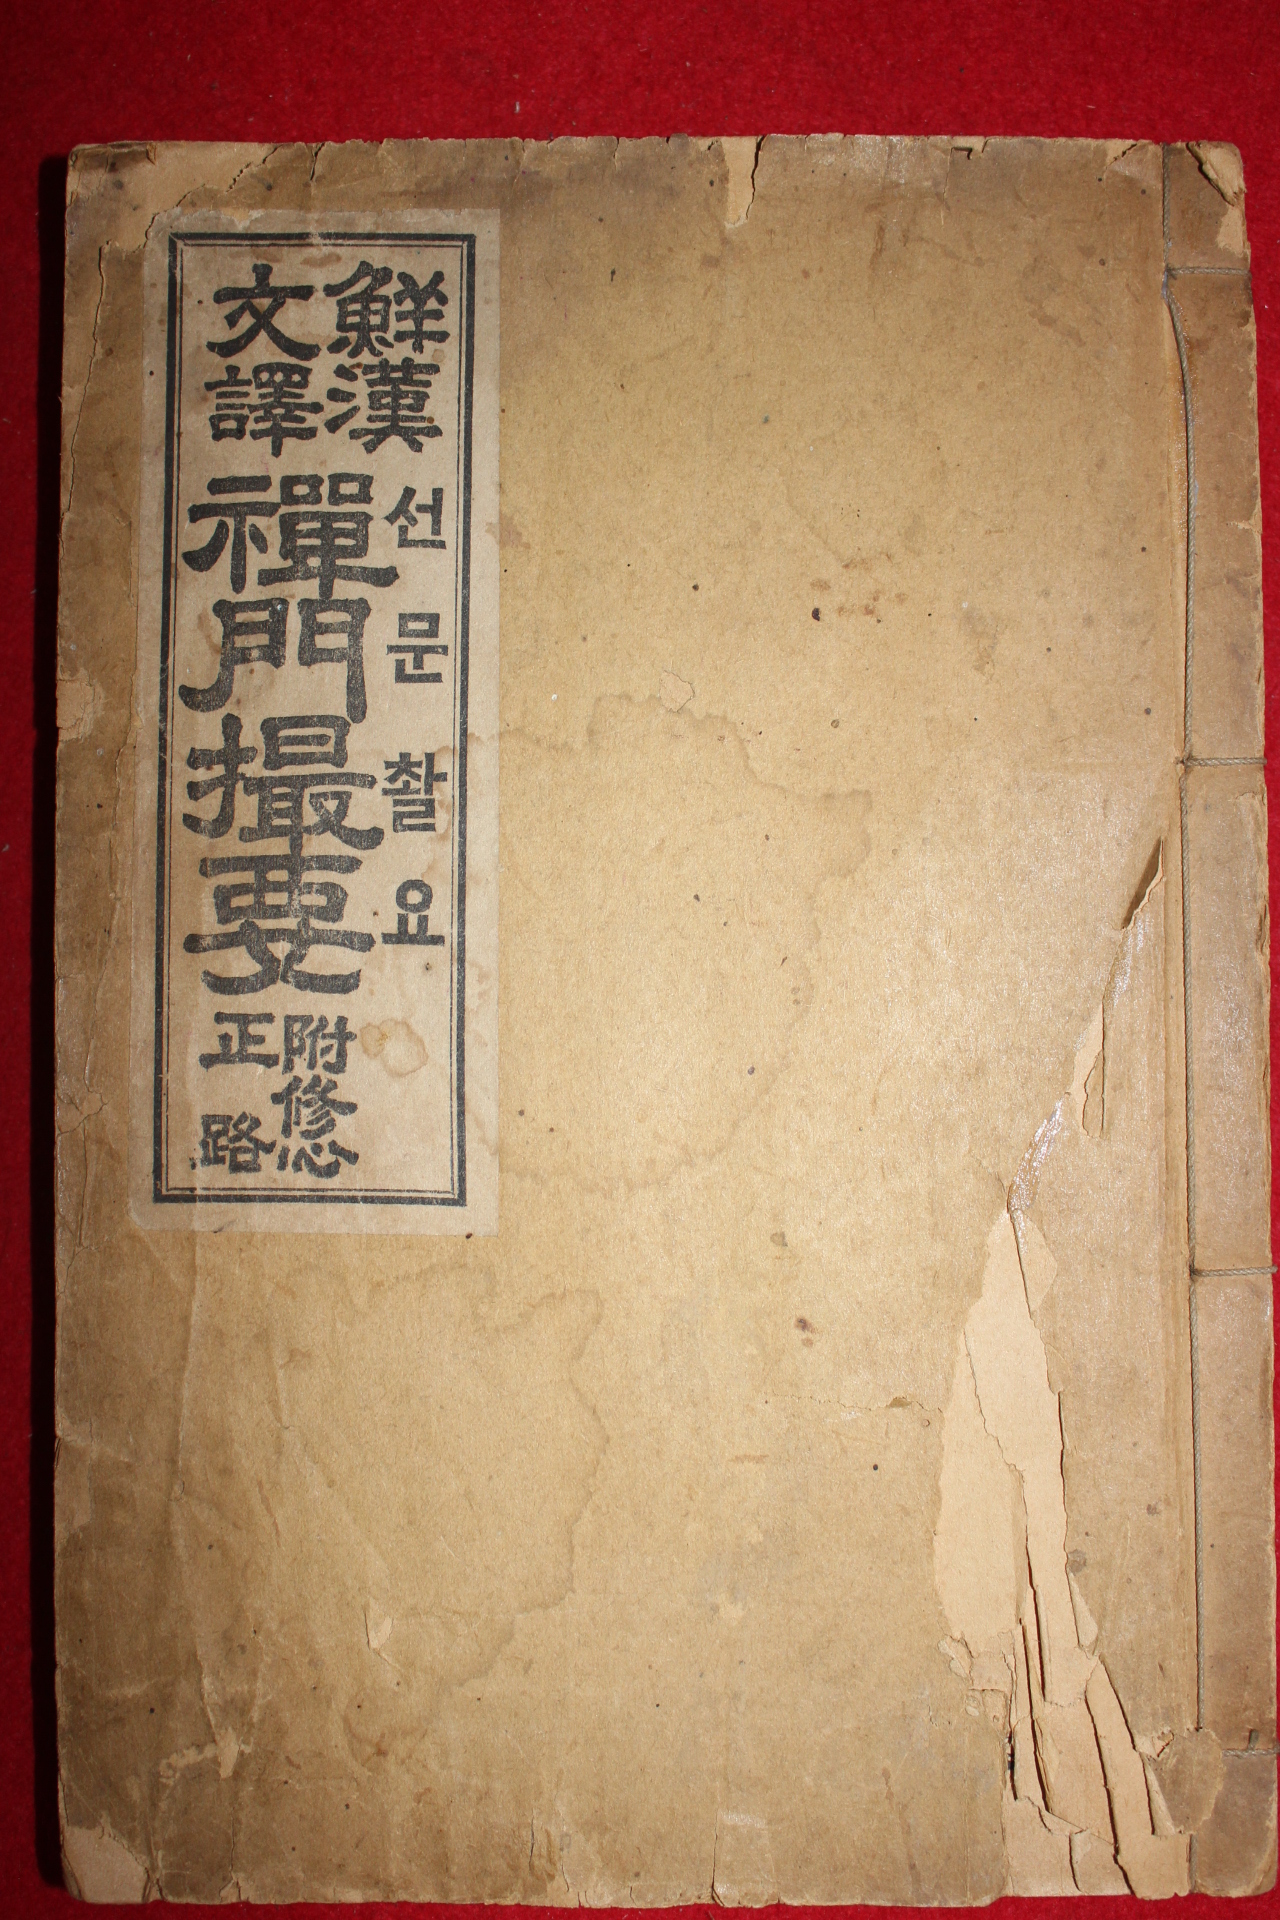 鮮漢
文譯
선문촬요
禪門撮要
附修心
正路